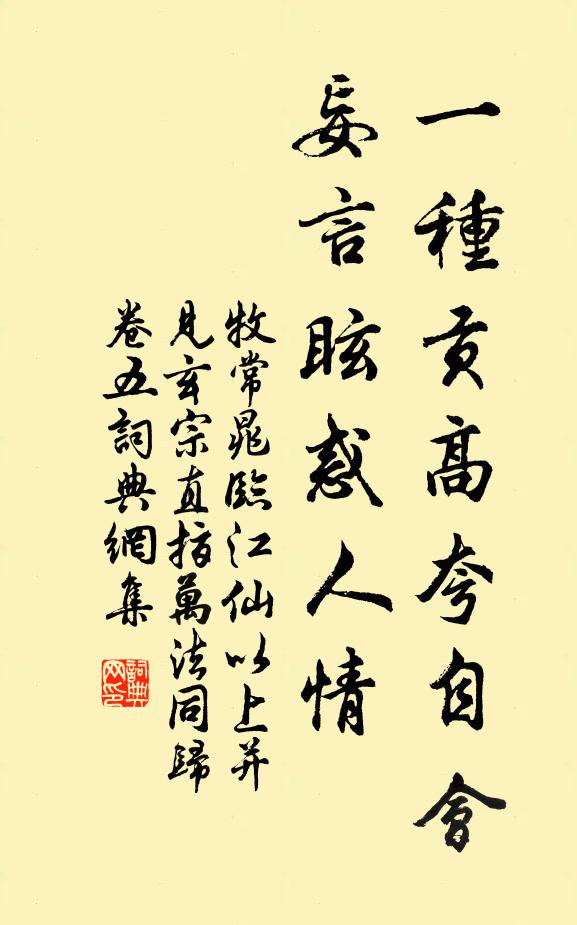 一種貢高夸自會
妄言眩惑人情
牧常晁臨江仙以上并
見玄宗直指萬法同歸
卷五詞典網集
詞典网印